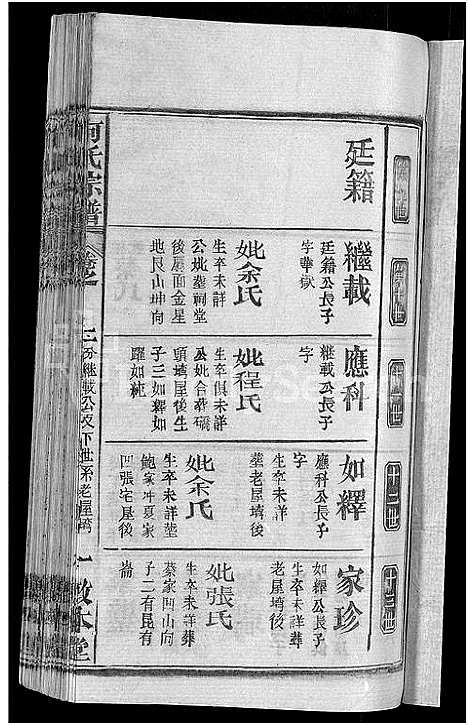 廷籍
繼載
廷籍公長子
字華獄
妣余氏
生卒未詳
公妣塟祠堂
後層面金星
地艮山坤向
應科
繼載公長子
字
妣程氏
生卒俱未詳
公妣合葬磡
頭塆屋後生
子三如釋如
躍如純
十二世
如繹
應科公長子
字
生卒未詳
塟老屋塆後
妣余氏
生卒未詳塟
鮑家冲夏家
凹張宅屋後
十三世
家珍
如繹公長子
生卒未詳葬
老屋塆後
妣張氏
生卒未詳葬
蔡家凹山向
子二有昆有
崙
何氏宗譜
卷之
上二分繼載公以下世系老屋塆
一敦本堂